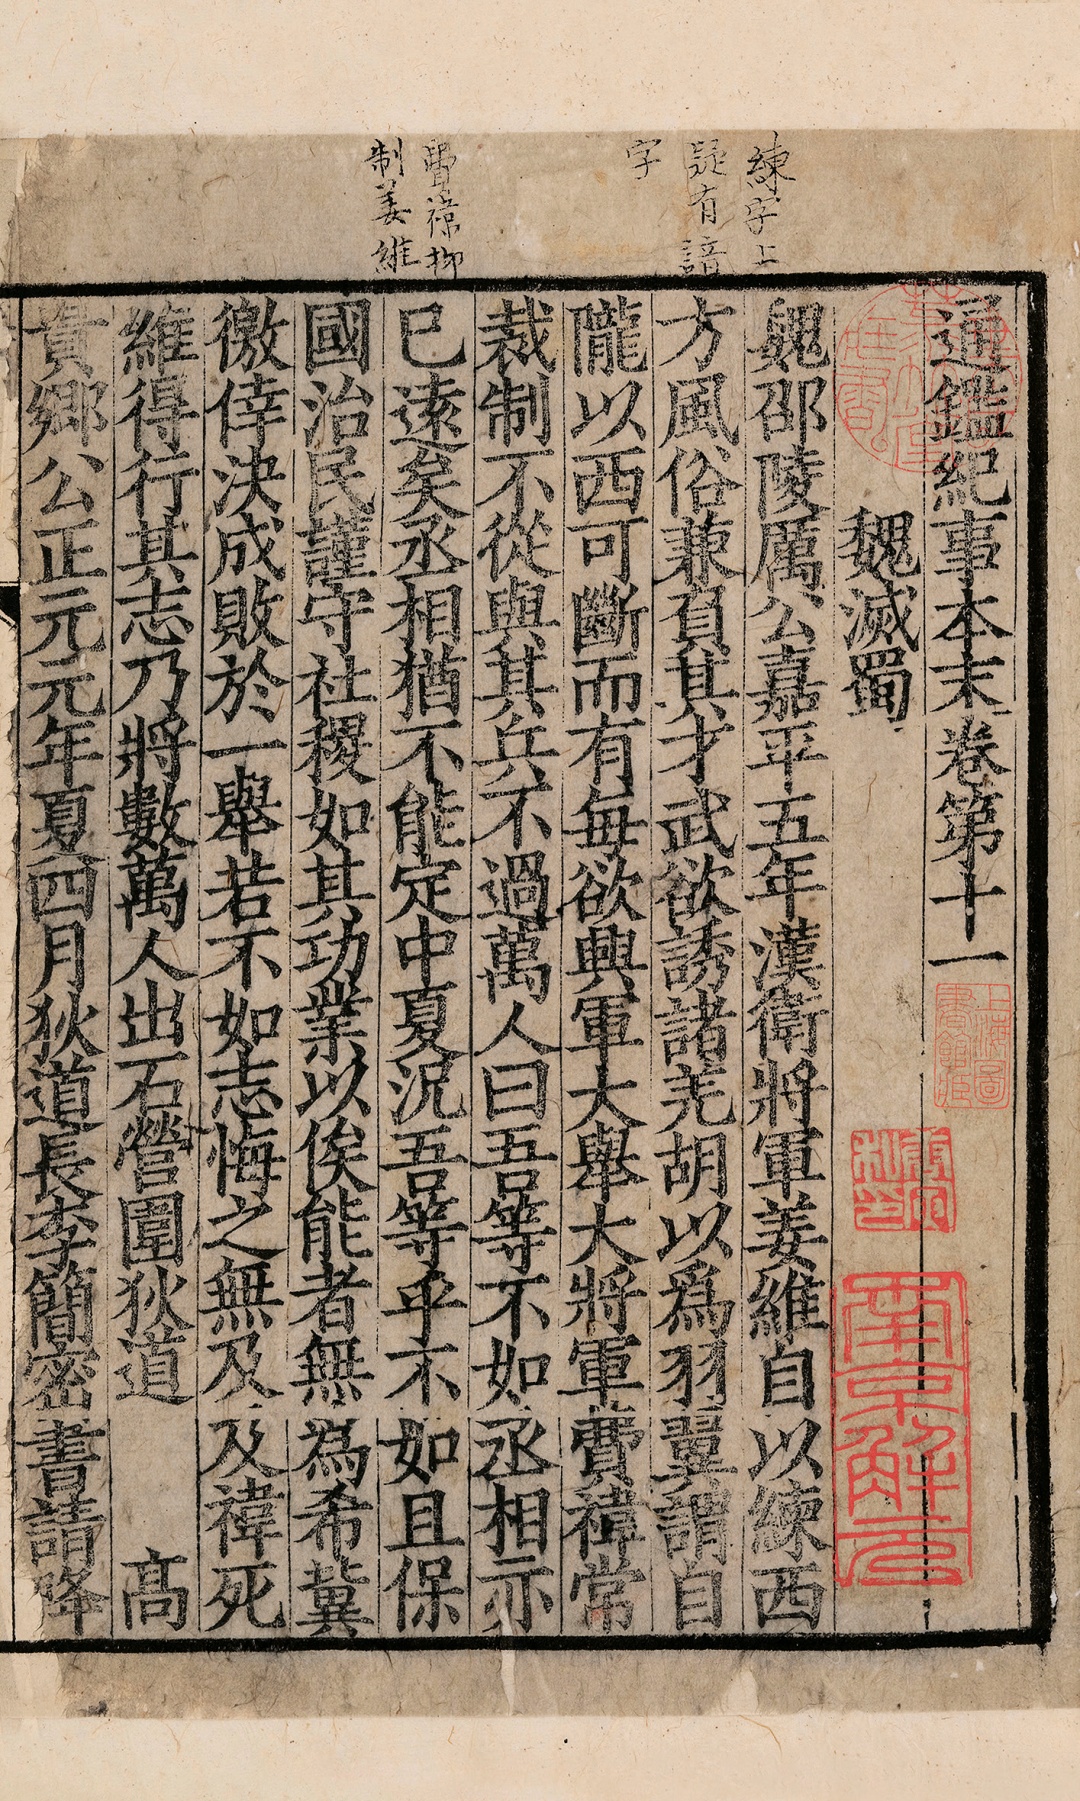 練字上
疑有諳
字
費禕抑
制姜維
通鑑紀事本末卷第十一
魏滅蜀
魏邵陵厲公嘉平五年漢衛將軍姜維自以練西
方風俗兼負其才武欲誘諸羌胡以爲羽翼謂自
隴以西可斷而有每欲興軍大舉大將軍費禕常
裁制不從與其兵不過萬人曰吾等不如丞相亦
已遠矣丞相猶不能定中夏況吾等乎不如且保
國治民謹守社稷如其功業以俟能者無爲希冀
徼倖決成敗於一舉若不如志悔之無及及禕死
維得行其志乃將數萬人出石營圍狄道 高
貴鄉公正元元年夏四月狄道長李簡密書請降
上海圖書館藏
南京解元